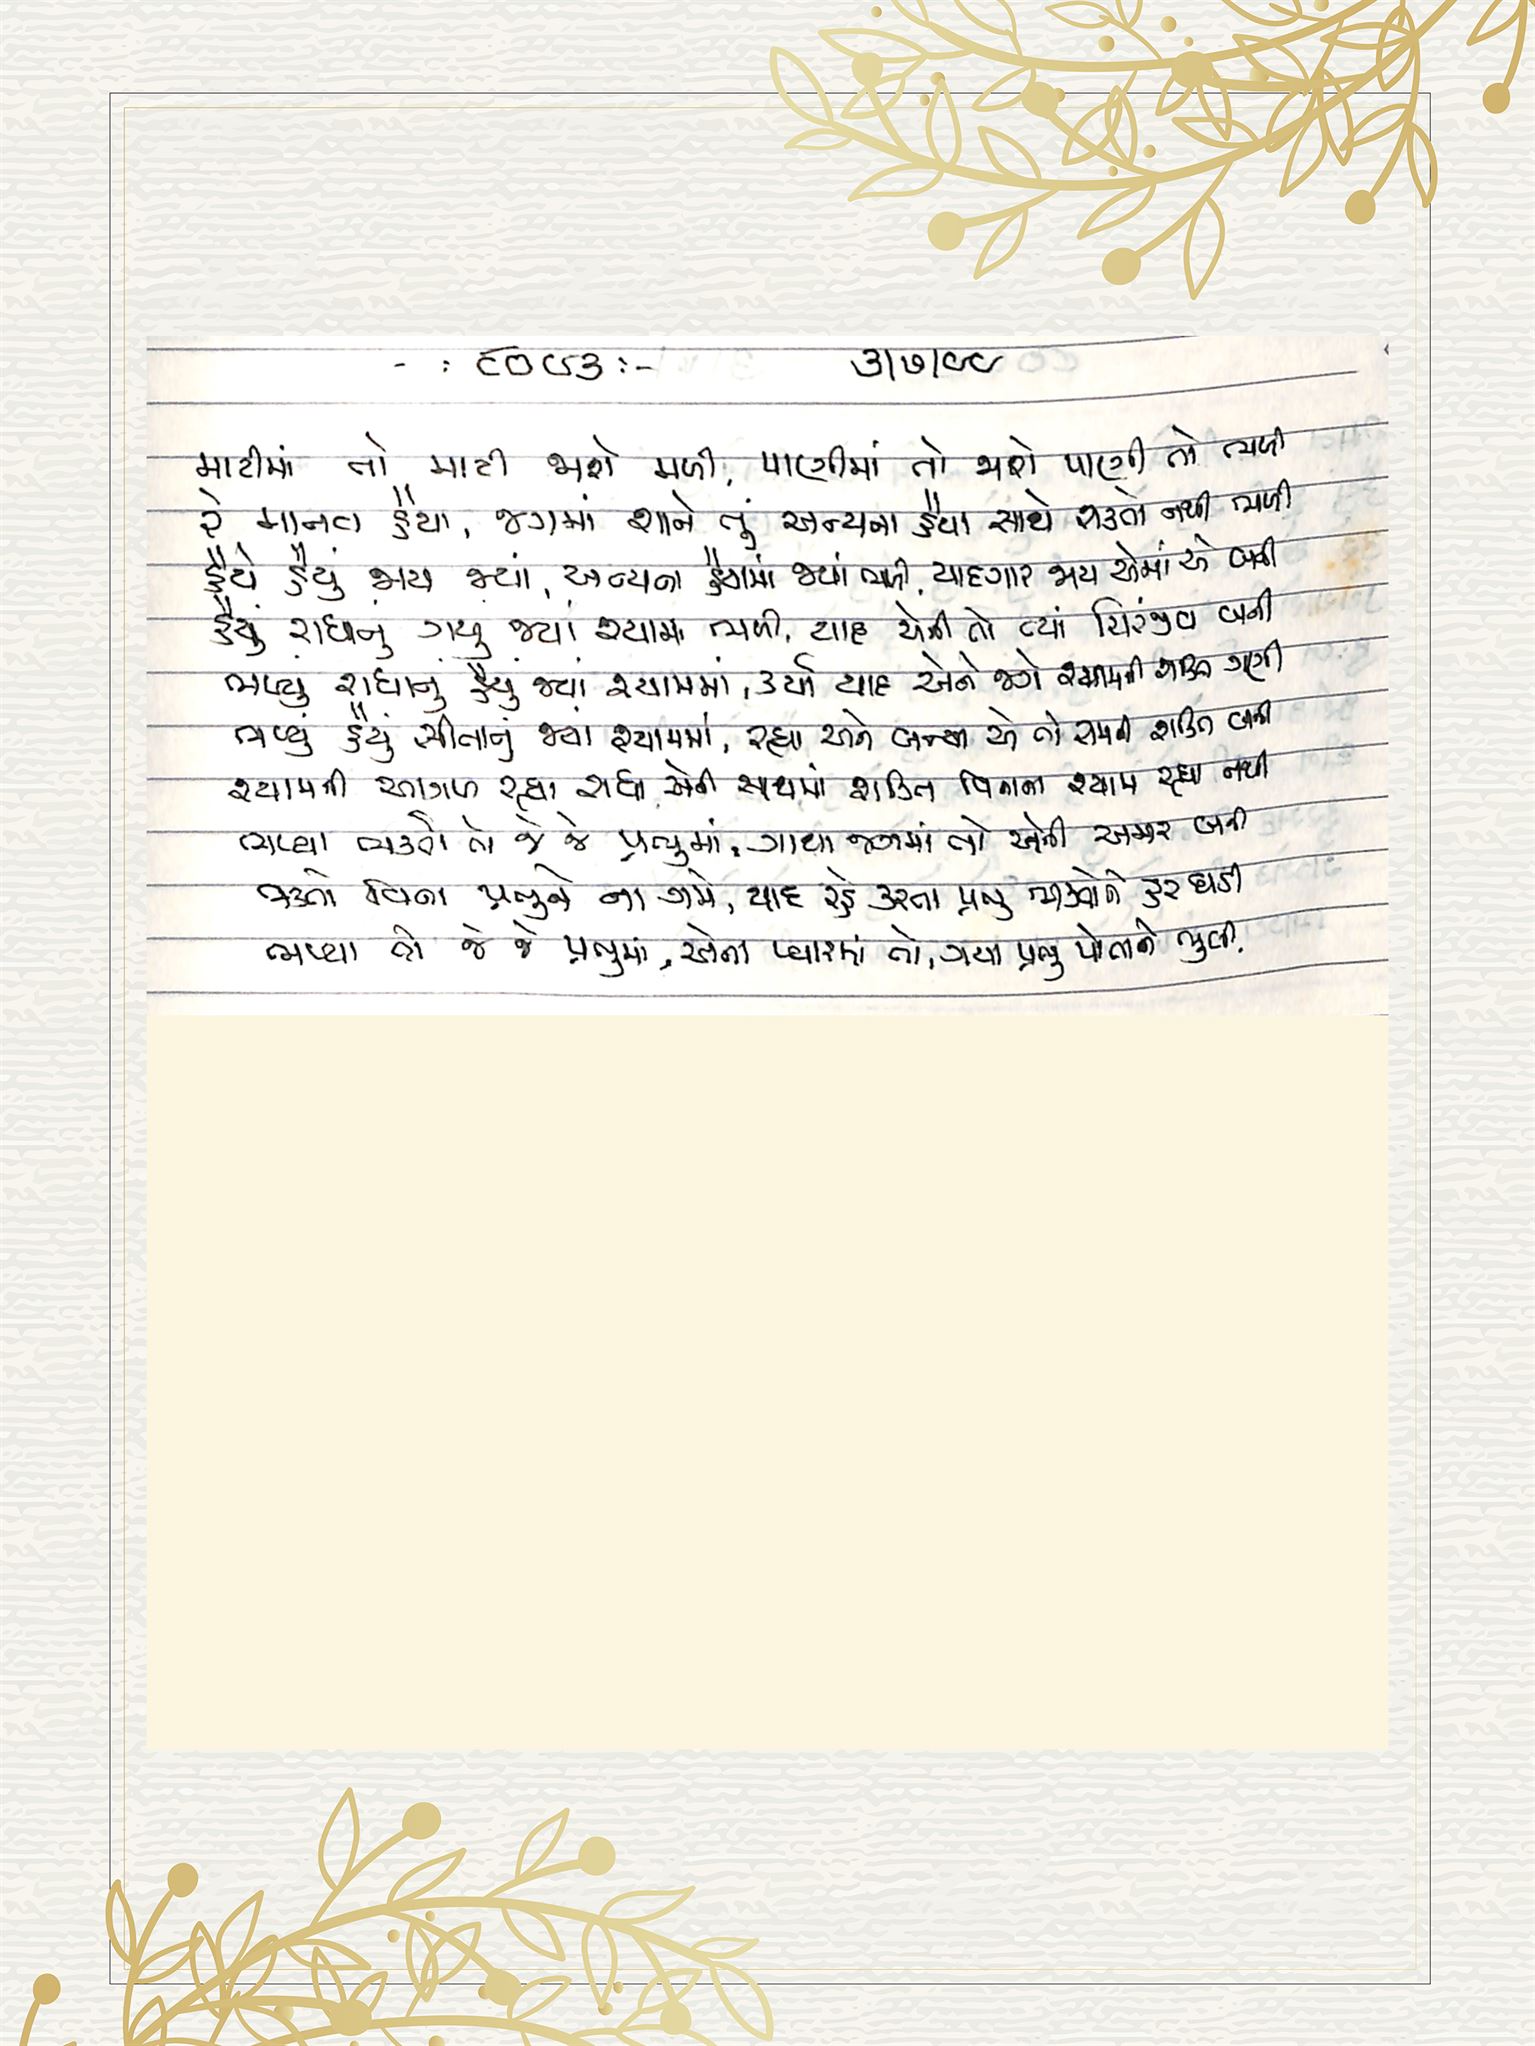 - : ૮૦૯૩ :- ૩/૭/૯૯
માટીમાં તો માટી જાશે મળી, પાણીમાં તો જાશે પાણી તો ભળી
રે માનવ હૈયા, જગમાં શાને તું અન્યના હૈયા સાથે શકતો નથી ભળી
હૈયે હૈયું જાય જ્યાં, અન્યના હૈયામાં જ્યાં ભળી, યાદગાર જાય એમાં એ બની
હૈયું રાધાનું ગયું જ્યાં શ્યામમાં ભળી, યાદ એની તો ત્યાં ચિરંજીવ બની
ભળ્યું રાધાનું હૈયું જ્યાં શ્યામમાં, કર્યા યાદ એને જગે શ્યામની શક્તિ ગણી
ભળ્યું હૈયું સીતાનું જ્યાં શ્યામમાં, રહ્યા અને બન્યા એ તો રામની શક્તિ બની
શ્યામની આગળ રહ્યા રાધા એની સાથમાં શક્તિ વિનાના શ્યામ રહ્યા નથી
ભળ્યા ભક્તો તો જે જે પ્રભુમાં, ગાથા જગમાં તો એની અમર બની
ભક્તો વિના પ્રભુને ના ગમે, યાદ રહે કરતા પ્રભુ ભક્તોને હર ઘડી
ભળ્યા તો જે જે પ્રભુમાં, એના પ્યારમાં તો, ગયા પ્રભુ પોતાને ભુલી.